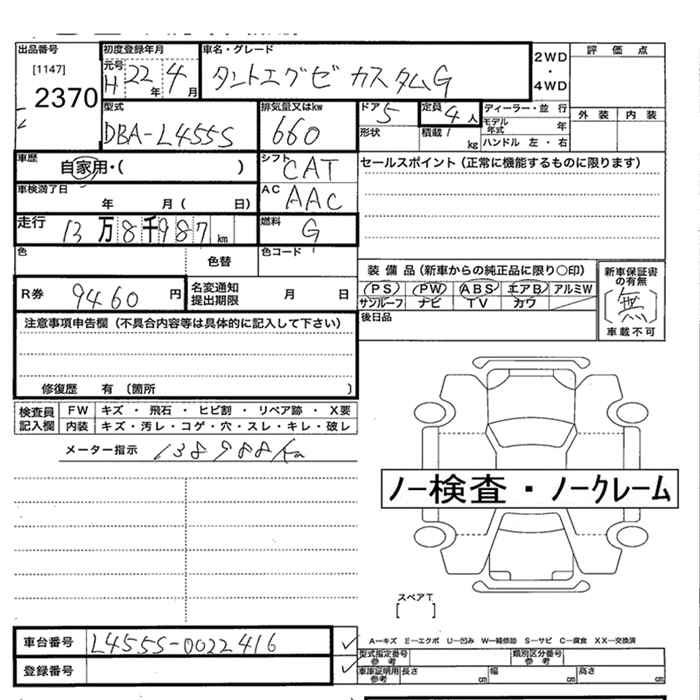 出品番号
[1147]
2370
初度登録年月
元号
H 22年 4月
車名・グレード
タントエグゼ カスタムG
2WD
・
4WD
評価点
外装 内装
型式
DBA-L455S
排気量又はkw
660
ドア 5
形状
定員 4人
積載 kg
ディーラー・並行
モデル年式 年
ハンドル 左・右
車歴
自家用・( )
シフト
CAT
セールスポイント (正常に機能するものに限ります)
車検満了日
年 月( 日)
AC
AAC
走行
13万8千987km
燃料
G
色
色替
色コード
R券 9460円
名変通知
提出期限
月 日
装備品 (新車からの純正品に限り○印)
PS PW ABS エアB アルミW
サンルーフ ナビ TV カワ
後日品
新車保証書
の有無
無
車載不可
注意事項申告欄 (不具合内容等は具体的に記入して下さい)
修復歴 有 〔箇所 〕
検査員
記入欄
FW キズ ・ 飛石 ・ ヒビ割 ・ リペア跡 ・ X要
内装 キズ・汚レ・コゲ・穴・スレ・キレ・破レ
メーター指示 138988Km
ノー検査・ノークレーム
スペアT
[ ]
車台番号 L455S-0022416
登録番号
A―キズ E―エクボ U―凹み W―補修跡 S―サビ C―腐食 XX―交換済
型式指定番号
参考
類別区分番号
参考
車庫証明用
参考
長さ cm 幅 cm 高さ cm